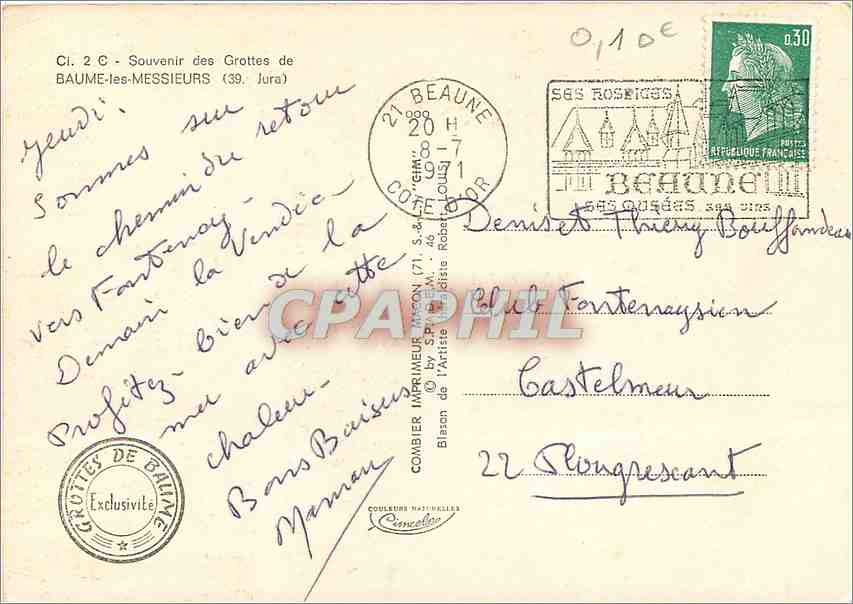 Cl. 2 C - Souvenir des Grottes de
BAUME-les-MESSIEURS (39. Jura)
Jeudi.
Sommes sur
le chemin du retour
vers Fontenay -
Demain la Vendée
Profitez bien de la
mer avec cette
chaleur -
Bons Baisers
Maman
GROTTES DE BAUME
Exclusivité
COMBIER IMPRIMEUR MACON (71. S.-&-L.) "CIM"
© by S.P.A.D.E.M. - 46
Blason de l'Artiste Héraldiste Robert Louis
COULEURS NATURELLES
Cimcolor
0,10€
21 BEAUNE
20 H
8-7
1971
COTE D'OR
SES HOSPICES
BEAUNE
SES MUSÉES SES VINS
0,30
POSTES
REPUBLIQUE FRANÇAISE
Denis et Thierry Bouffandeau
Club Fontenaysien
Castelmeur
22 Plougrescant
CPAPHIL